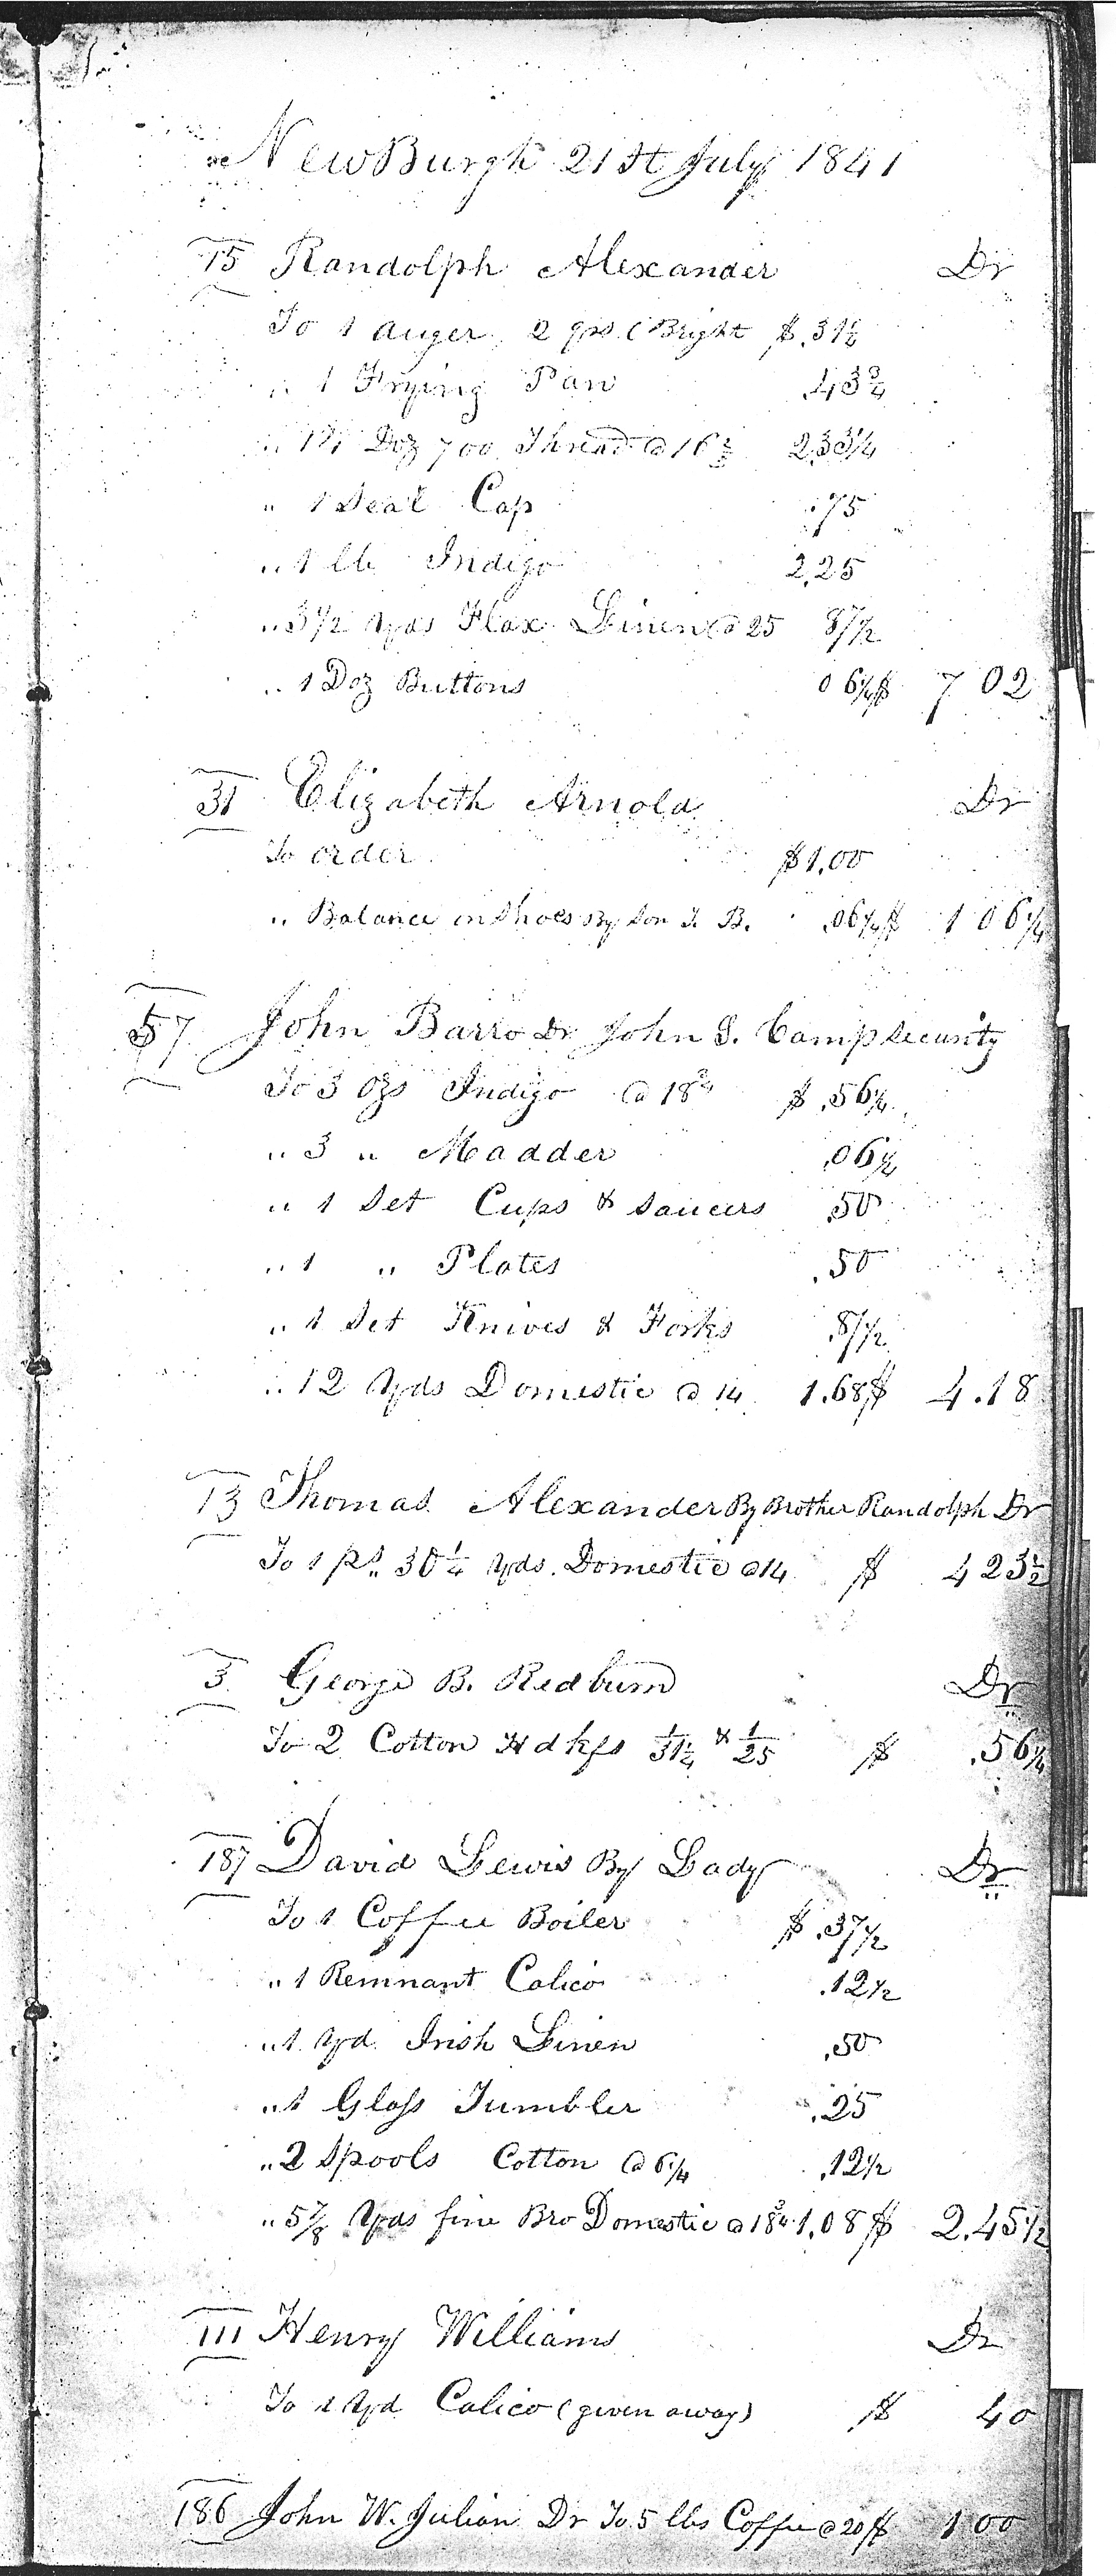 NewBurgh 21st July 1841
15 Randolph Alexander Dr
To 1 auger, 2 qrs (Bright $ .31½
" 1 Frying Pan .43¾
" Doz 700 Thread @ 16⅔ 2,33¼
" 1 Seal Cap .75
" 1 lb Indigo 2,25
" 3½ Yds Flax Linen @ 25 87½
" 1 Doz Buttons 06¼ $ 7 02
31 Elizabeth Arnold Dr
To order $1,00
" Balance in Shoes By Son T. B. ,06¼ $ 1 06¼
57 John Barro Dr John S. Camp security
To 3 Ozs Indigo @ 18¾ $ ,56¼
" 3 " Madder ,06¼
" 1 Set Cups & Saucers ,50
" 1 " Plates ,50
" 1 Set Knives & Forks ,87½
" 12 Yds Domestic @ 14 1.68 $ 4.18
13 Thomas Alexander By Brother Randolph Dr
To 1 ps 30¼ Yds. Domestic @ 14 $ 4 23½
3 George B. Redburn Dr
To 2 Cotton Hdkfs 1/31¼ & 1/25 $ .56¼
187 David Lewis By Lady Dr
To 1 Coffee Boiler $ .37½
" 1 Remnant Calico .12½
" 1 Yd Irish Linen ,50
" 1 Glass Tumbler ,25
" 2 Spools Cotton @ 6¼ ,12½
" 5⅞ Yds fine Bro Domestic @ 18¾ 1,08 $ 2.45½
111 Henry Williams Dr
To 1 Yd Calico (given away) $ 40
186 John W. Julian Dr To 5 lbs Coffee @ 20 $ 1 00